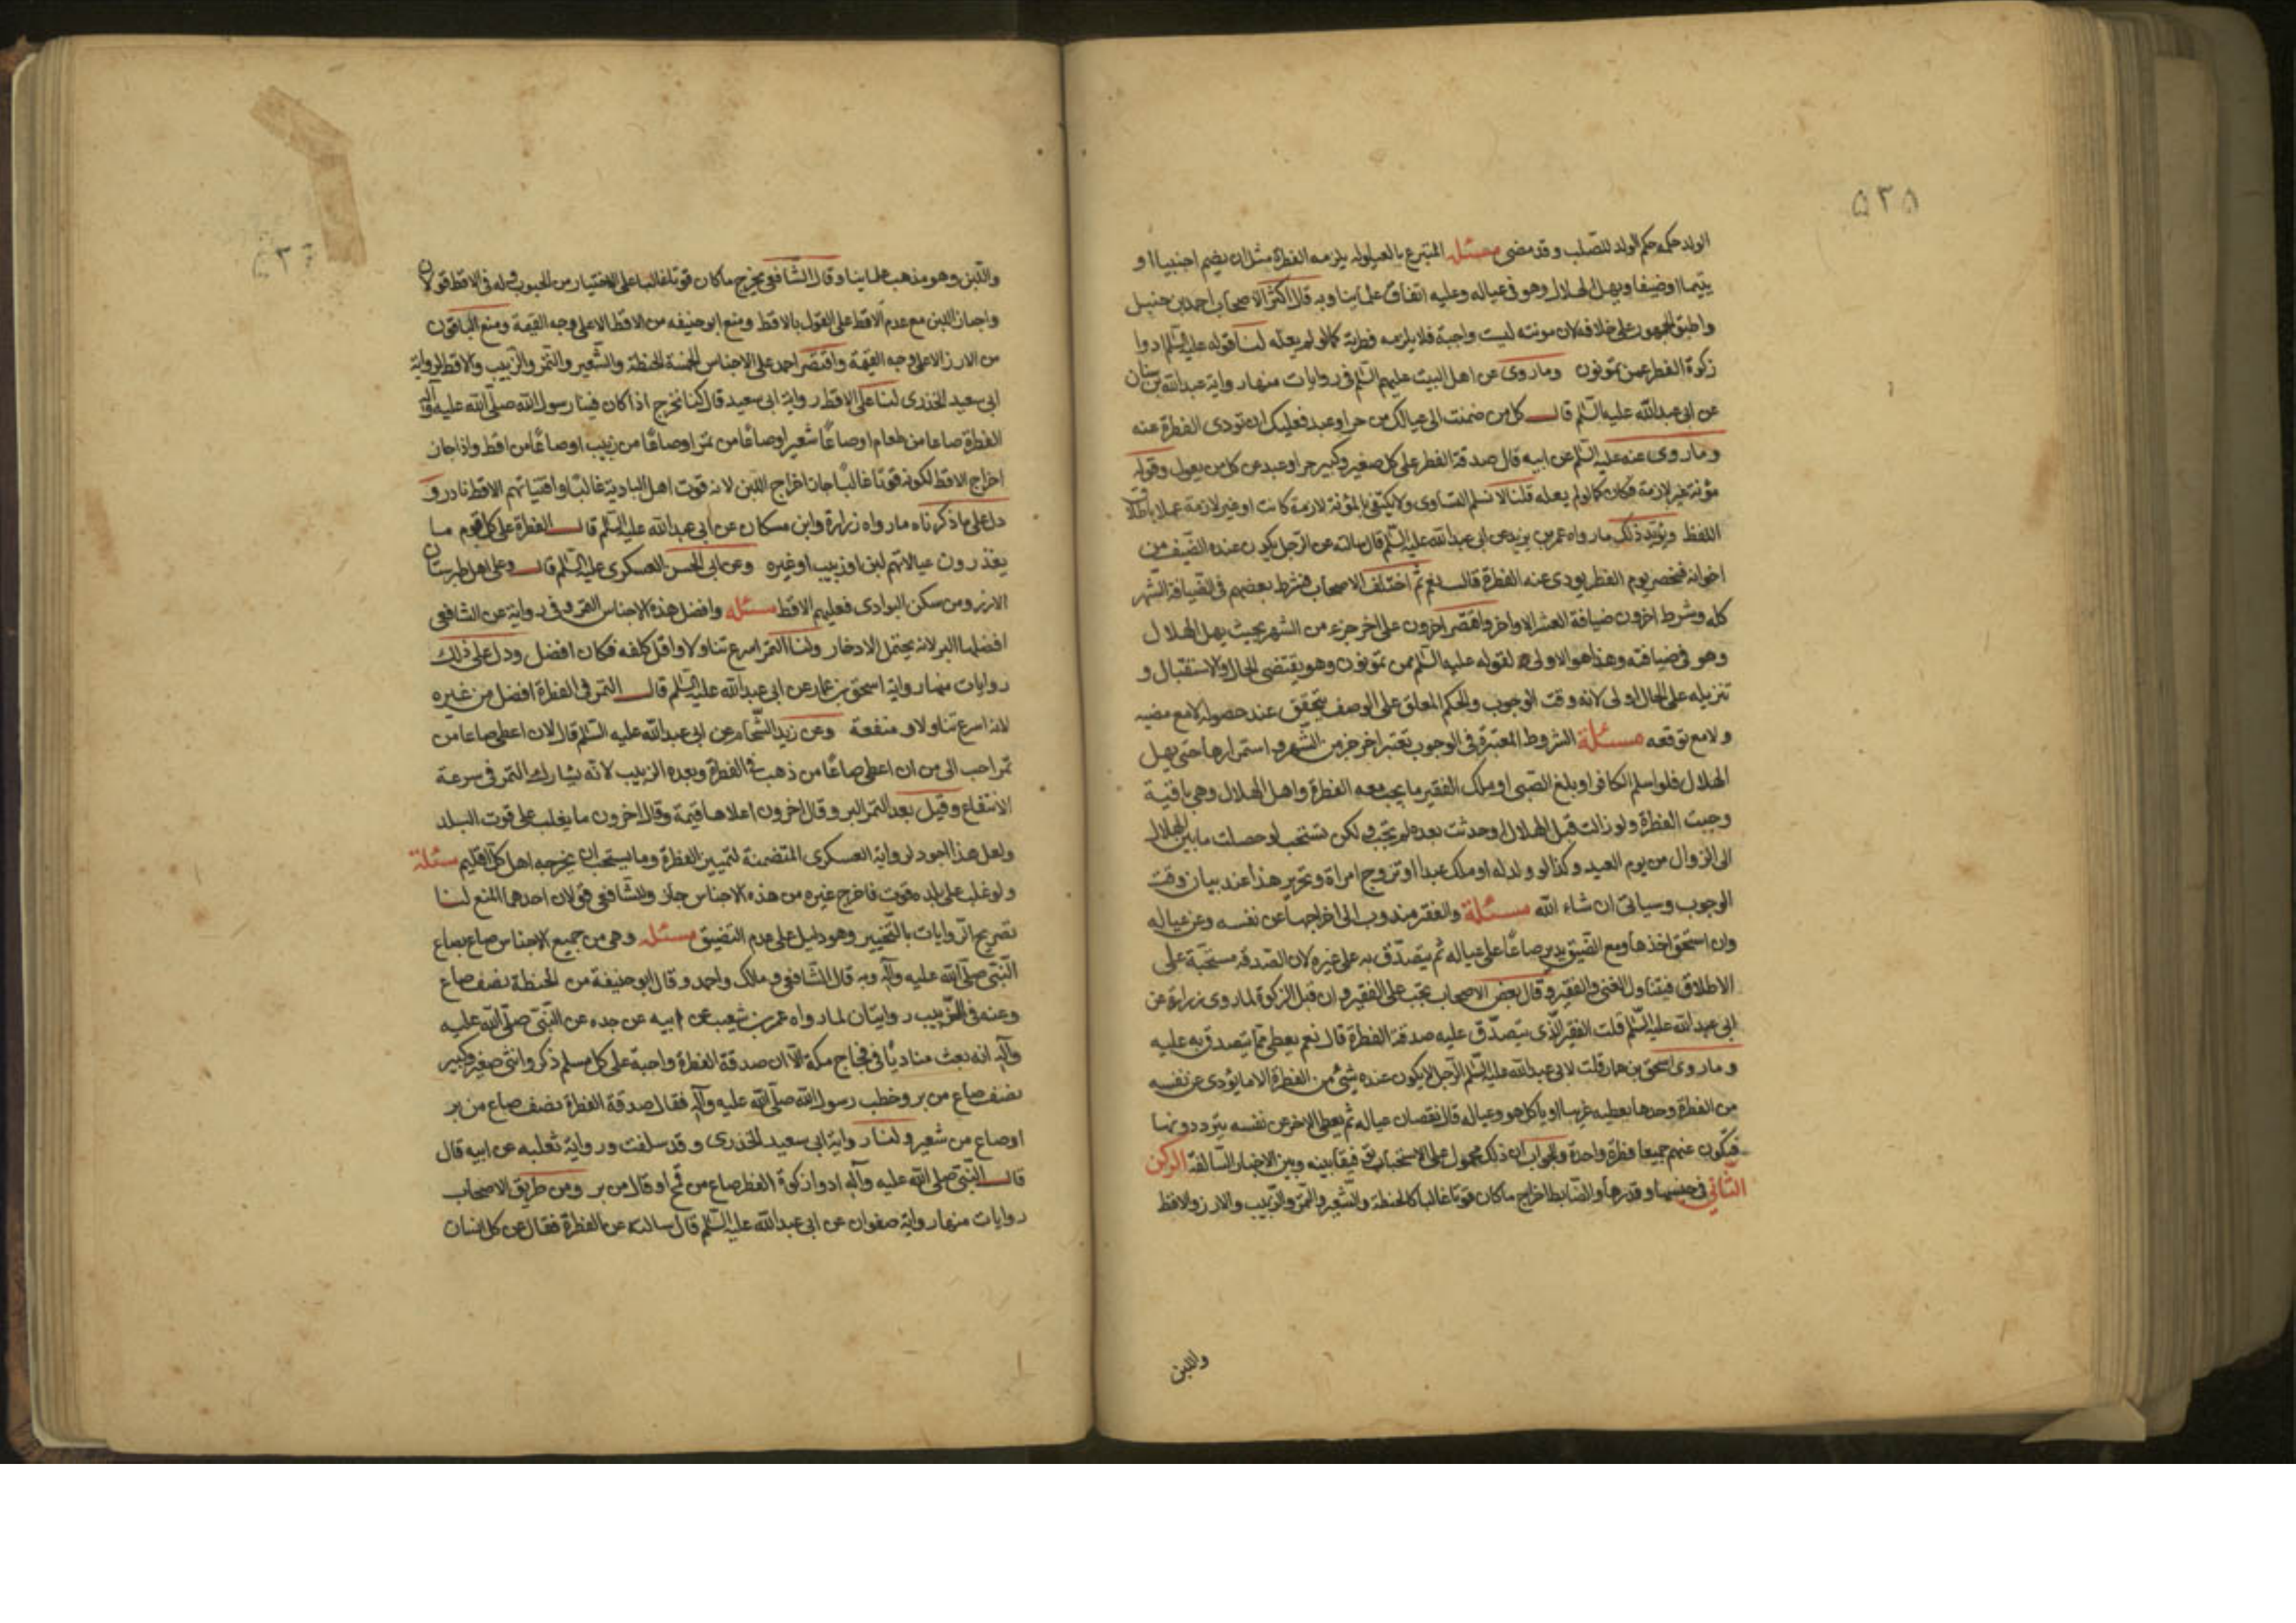 ٥٢٥
الولد حكمه حكم الولد للصلب وقد مضى مسئله المتبرع بالعيلوله يلزمه الفطرة مثل ان يضم اجنبيا او
يتيما او ضيفا ويهل الهلال وهو في عياله وعليه اتفاق علمائنا وبه قال اكثر الاصحاب احمد بن حنبل
واطبق الجمهور على خلافه لان مونته ليست واجبة فلا يلزمه فطرته كما لو لم يعله لنا قوله عليه السلم ادوا
زكوة الفطر عمن تمونون وما روى عن اهل البيت عليهم السلم في روايات منها رواية عبدالله بن سنان
عن ابى عبدالله عليه السلم قال كل من ضمنت الى عيالك من حر او عبد فعليك ان تودى الفطرة عنه
وما روى عنه عليه السلم عن ابيه قال صدقة الفطر على كل صغير وكبير حر او عبد عن كل من يعول وقوله
مؤنة غير لازمة فكان كما لو لم يعله قلنا لا نسلم التساوى ولا يكتفى بالمؤنة لازمة كانت او غير لازمة عملا باطلاق
اللفظ ويؤيد ذلك ما رواه عمر بن يزيد عن ابى عبدالله عليه السلم قال سالته عن الرجل يكون عنده الضيف من
اخوانه فيحضر يوم الفطر يودى عنه الفطرة قال نعم ثم اختلف الاصحاب فشرط بعضهم في الضيافة الشهر
كله وشرط اخرون ضيافة العشر الاواخر واقتصر اخرون على اخر جزء من الشهر بحيث يهل الهلال
وهو في ضيافته وهذا هو الاولى لقوله عليه السلم ممن تمونون وهو يقتضى الحال والاستقبال و
تنزيله على الحال اولى لانه وقت الوجوب والحكم المعلق على الوصف يتحقق عند حصوله لا مع مضيه
ولا مع توقعه مسئلة الشروط المعتبرة في الوجوب تعتبر اخر جزء من الشهر واستمرارها حتى يهل
الهلال فلو اسلم الكافر او بلغ الصبى او ملك الفقير ما يجب معه الفطرة واهل الهلال وهي باقية
وجبت الفطرة ولو زالت قبل الهلال او حدثت بعده لم تجب ولكن تستحب لو حصلت ما بين الهلال
الى الزوال من يوم العيد وكذا لو ولد له او ملك عبدا او تزوج امراة وتحرير هذا عند بيان وقت
الوجوب وسياتى ان شاء الله مسئلة والفقر مندوب الى اخراجها عن نفسه وعن عياله
وان استحق اخذها ومع الضيق يدير صاعا على عياله ثم يتصدق به على غيره لان الصدقة مستحبة على
الاطلاق فيتناول الغنى والفقير وقال بعض الاصحاب تجب على الفقير وان قبل الزكوة لما روى زرارة عن
ابى عبدالله عليه السلم قلت الفقير الذى يتصدق عليه صدقة الفطرة قال نعم يعطى مما يتصدق به عليه
وما روى اسحق بن عمار قلت لابى عبدالله عليه السلم الرجل لا يكون عنده شئ من الفطرة الا ما يؤدى عن نفسه
من الفطرة وحدها يعطيه غريبا او ياكل هو وعياله قال بعض عياله ثم يعطى الاخر عن نفسه يترددونها
فيكون عنهم جميعا فطرة واحدة والجواب ان ذلك محمول على الاستحباب توفيقا بينه وبين الاخبار السالفة الركن
الثانى في جنسها وقدرها والضابط اخراج ما كان قوتا غالبا كالحنطة والشعير والتمر والزبيب والارز والاقط
واللبن
واللبن وهو مذهب علماينا وقال الشافعى يخرج ما كان قوتا غالبا على الاختيار من الحبوب وله في الاقط قولان
واجاز اللبن مع عدم الاقط على القول بالاقط ومنع ابو حنيفه من الاقط الا على وجه القيمة ومنع الباقون
من الارز الا على وجه القيمة واقتصر احمد على الاجناس الخمسة الحنطة والشعير والتمر والزبيب والاقط لرواية
ابى سعيد الخدرى لنا على الاقط رواية ابى سعيد قال كنا نخرج اذا كان فينا رسول الله صلى الله عليه وآله
الفطرة صاعا من طعام او صاعا شعير او صاعا من تمر او صاعا من زبيب او صاعا من اقط واذا جاز
اخراج الاقط لكونه قوتا غالبا جاز اخراج اللبن لانه قوت اهل البادية غالبا واقتياتهم الاقط نادر و
دل على ما ذكرناه ما رواه زرارة وابن مسكان عن ابى عبدالله عليه السلم قال الفطرة على كل قوم ما
يغذرون عيالاتهم لبن او زبيب او غيره وعن ابى الحسن العسكرى عليه السلم قال وعلى اهل طبرستان
الارز ومن سكن البوادى فعليهم الاقط مسئله وافضل هذه الاجناس التمر وفى رواية عن الشافعى
افضلها البر لانه يحتمل الادخار ولنا التمر اسرع تناولا واقل كلفه فكان افضل ودل على ذلك
روايات منها رواية اسحق بن عمار عن ابى عبدالله عليه السلم قال التمر في الفطرة افضل من غيره
لانه اسرع تناولا و منفعة وعن زيد الشحام عن ابى عبدالله عليه السلم قال لان اعطى صاعا من
تمر احب الى من ان اعطى صاعا من ذهب في الفطرة وبعده الزبيب لانه يشارك التمر في سرعة
الانتفاع وقيل بعد التمر البر وقال اخرون اعلاها قيمة وقال اخرون ما يغلب على قوت البلد
ولعل هذا اجود لرواية العسكرى المتضمنة لتمييز الفطرة وما يستحب ان يخرجه اهل كل اقليم مسئلة
ولو غلب على بلده قوت فاخرج غيره من هذه الاجناس جاز وللشافعى قولان احدهما المنع لنا
تصريح الروايات بالتخيير وهو دليل على عدم التضيق مسئله وهى من جميع الاجناس صاع بصاع
النبى صلى الله عليه وآله وبه قال الشافعى و مالك واحمد وقال ابو حنيفة من الحنطة نصف صاع
وعنه في الزبيب روايتان لما رواه عمر بن شعيب عن ابيه عن جده عن النبى صلى الله عليه
وآله انه بعث مناديا في فجاج مكة الا ان صدقة الفطرة واجبة على كل مسلم ذكر وانثى صغير وكبير
نصف صاع من بر وخطب رسول الله صلى الله عليه وآله فقال صدقة الفطرة نصف صاع من بر
او صاع من شعير ولنا رواية ابى سعيد الخدرى وقد سلفت ورواية ثعلبه عن ابيه قال
قال النبى صلى الله عليه وآله ادوا زكوة الفطر صاع من قمح او قال من بر ومن طريق الاصحاب
روايات منها رواية صفوان عن ابى عبدالله عليه السلم قال سالته عن الفطرة فقال عن كل انسان